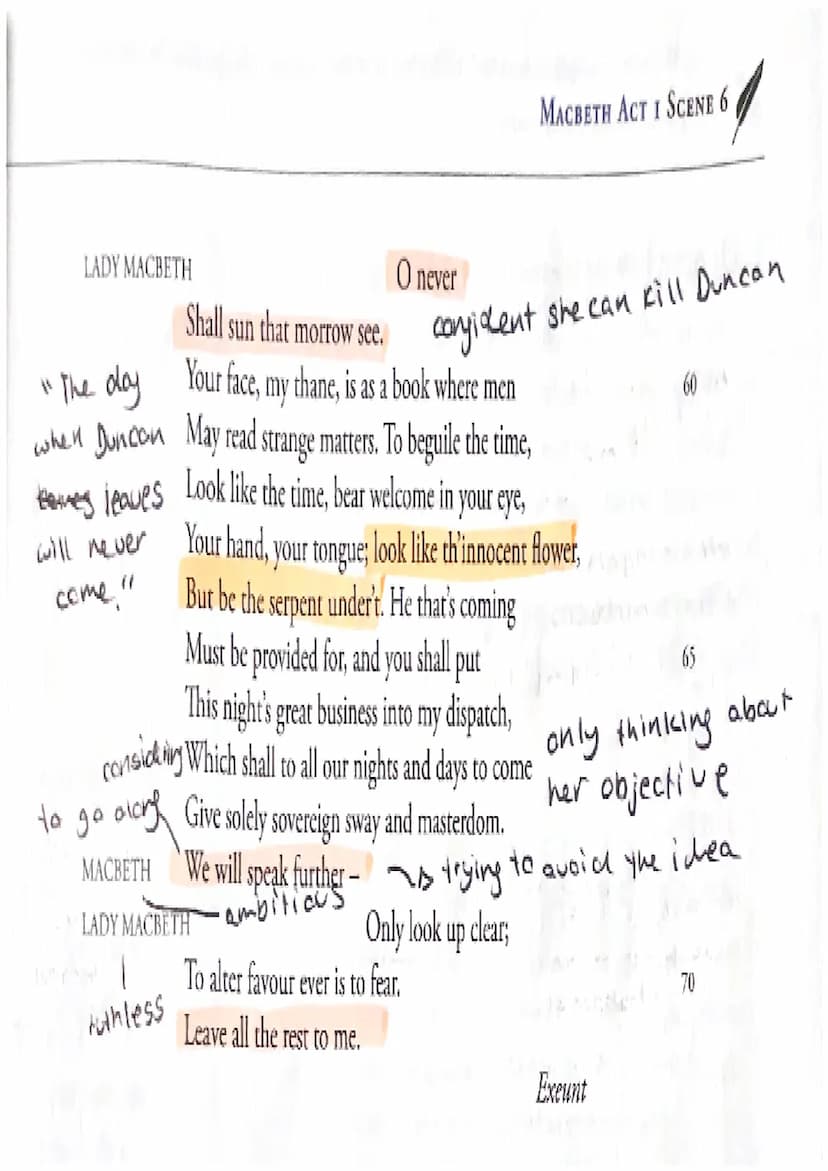 MACBETH ACT I SCENE 6
LADY MACBETH O never
Shall sun that morrow see. confident she can kill Duncan
Your face, my thane, is as a book where men 60
May read strange matters. To beguile the time,
Look like the time, bear welcome in your eye,
Your hand, your tongue; look like th'innocent flower,
But be the serpent under't. He that's coming
"The day
when Duncan
leaves
will never
come."
Must be provided for, and you shall put 65
This night's great business into my dispatch,
Which shall to all our nights and days to come
Give solely sovereign sway and masterdom.
only thinking about
her objective
considering
to go along
MACBETH We will speak further – trying to avoid the idea
ambitious
LADY MACBETH Only look up clear;
To alter favour ever is to fear. 70
ruthless
Leave all the rest to me.
Exeunt